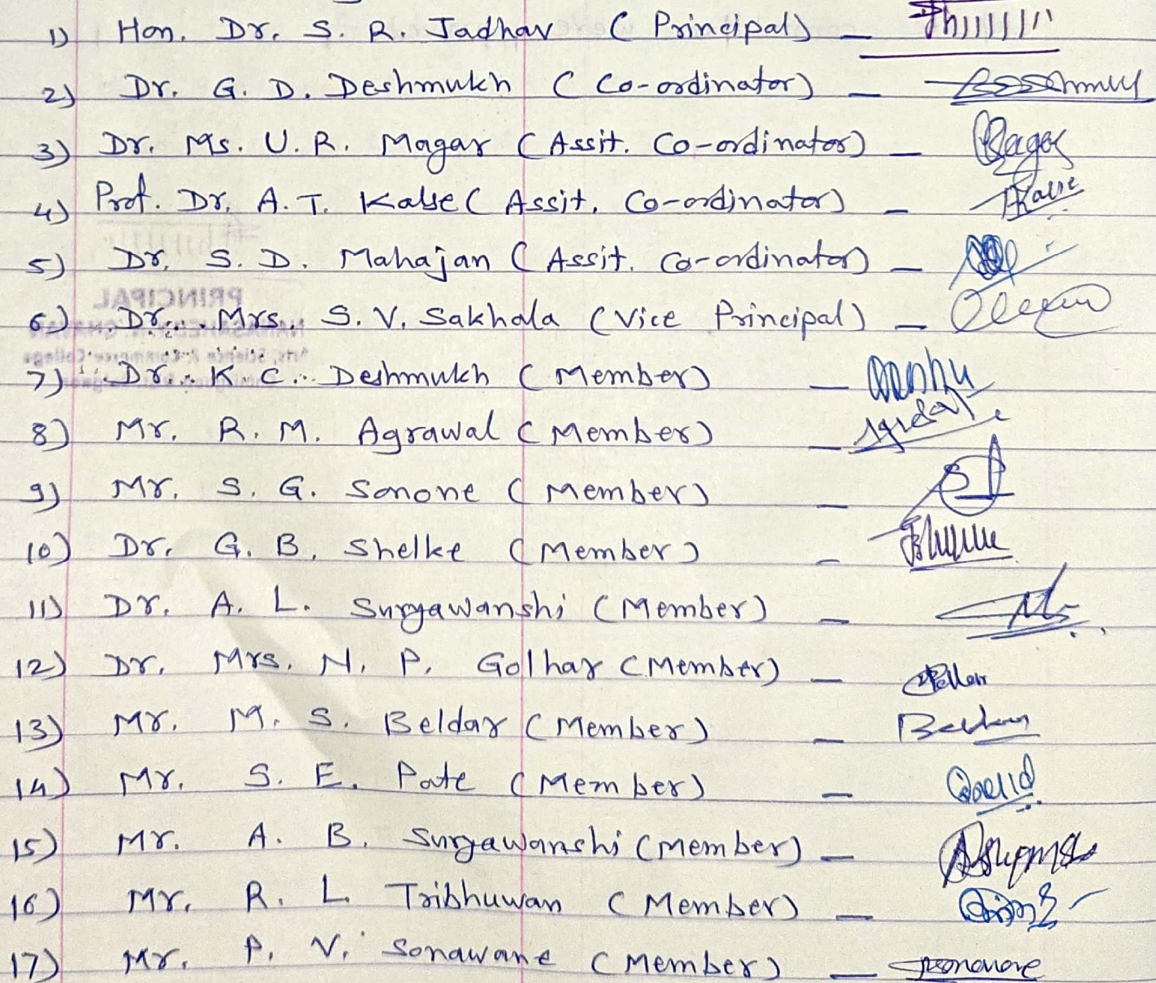 1) Hon. Dr. S. R. Jadhav ( Principal) –
2) Dr. G. D. Deshmukh ( Co-ordinator) –
3) Dr. Ms. U. R. Magar ( Assit. Co-ordinator) –
4) Prof. Dr. A. T. Kalse ( Assit. Co-ordinator) –
5) Dr. S. D. Mahajan ( Assit. Co-ordinator) –
6) Dr. Mrs. S. V. Sakhala (Vice Principal) –
7) Dr. K. C. Deshmukh ( Member) –
8) Mr. R. M. Agrawal ( Member) –
9) Mr. S. G. Sonone ( Member) –
10) Dr. G. B. Shelke ( Member) –
11) Dr. A. L. Suryawanshi (Member) –
12) Dr. Mrs. N. P. Golhar (Member) –
13) Mr. M. S. Beldar (Member) –
14) Mr. S. E. Pate (Member) –
15) Mr. A. B. Suryawanshi (Member) –
16) Mr. R. L. Tribhuwan (Member) –
17) Mr. P. V. Sonawane (Member) –